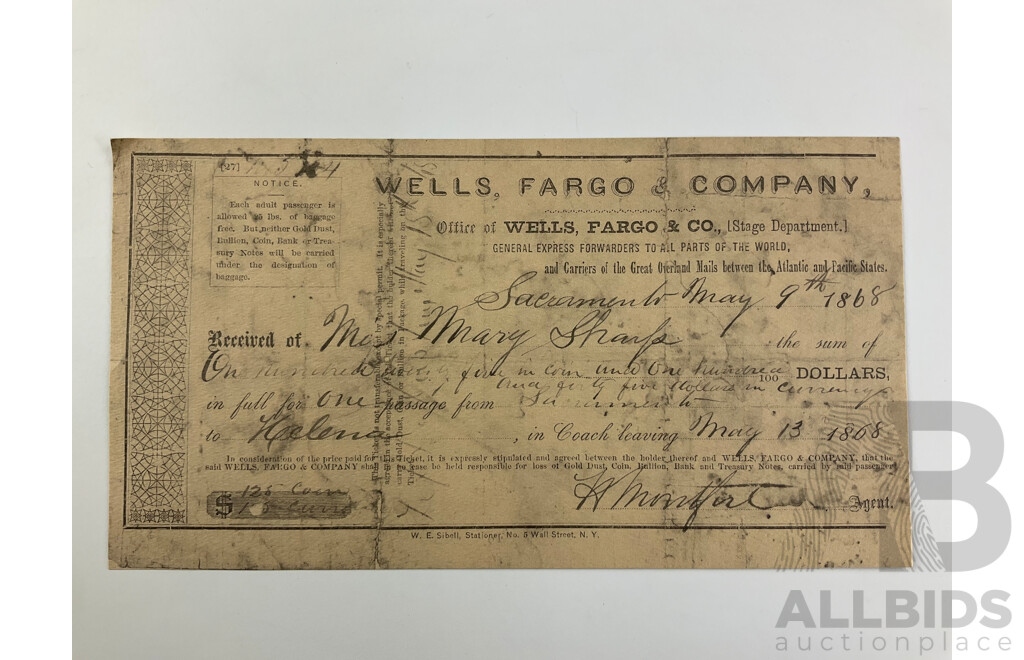 [27]
NOTICE.
Each adult passenger is
allowed 25 lbs. of baggage
free. But neither Gold Dust,
Bullion, Coin, Bank or Trea-
sury Notes will be carried
under the designation of
baggage.
WELLS, FARGO & COMPANY,
Office of WELLS, FARGO & CO., [Stage Department.]
GENERAL EXPRESS FORWARDERS TO ALL PARTS OF THE WORLD,
and Carriers of the Great Overland Mails between the Atlantic and Pacific States.
Sacramento May 9th 1868
Received of Mary Sharp the sum of
One hundred twenty five in coin and One hundred
and forty five dollars in currency 100 DOLLARS,
in full for One passage from Sacramento
to Helena, in Coach leaving May 13 1868
In consideration of the price paid for this Ticket, it is expressly stipulated and agreed between the holder thereof and WELLS, FARGO & COMPANY, that the
said WELLS, FARGO & COMPANY shall in no case be held responsible for loss of Gold Dust, Coin, Bullion, Bank and Treasury Notes, carried by said passenger
$ 125 Coin
H Montfort Agent.
W. E. Sibell, Stationer, No. 5 Wall Street, N. Y.
B
ALLBIDS
auctionplace